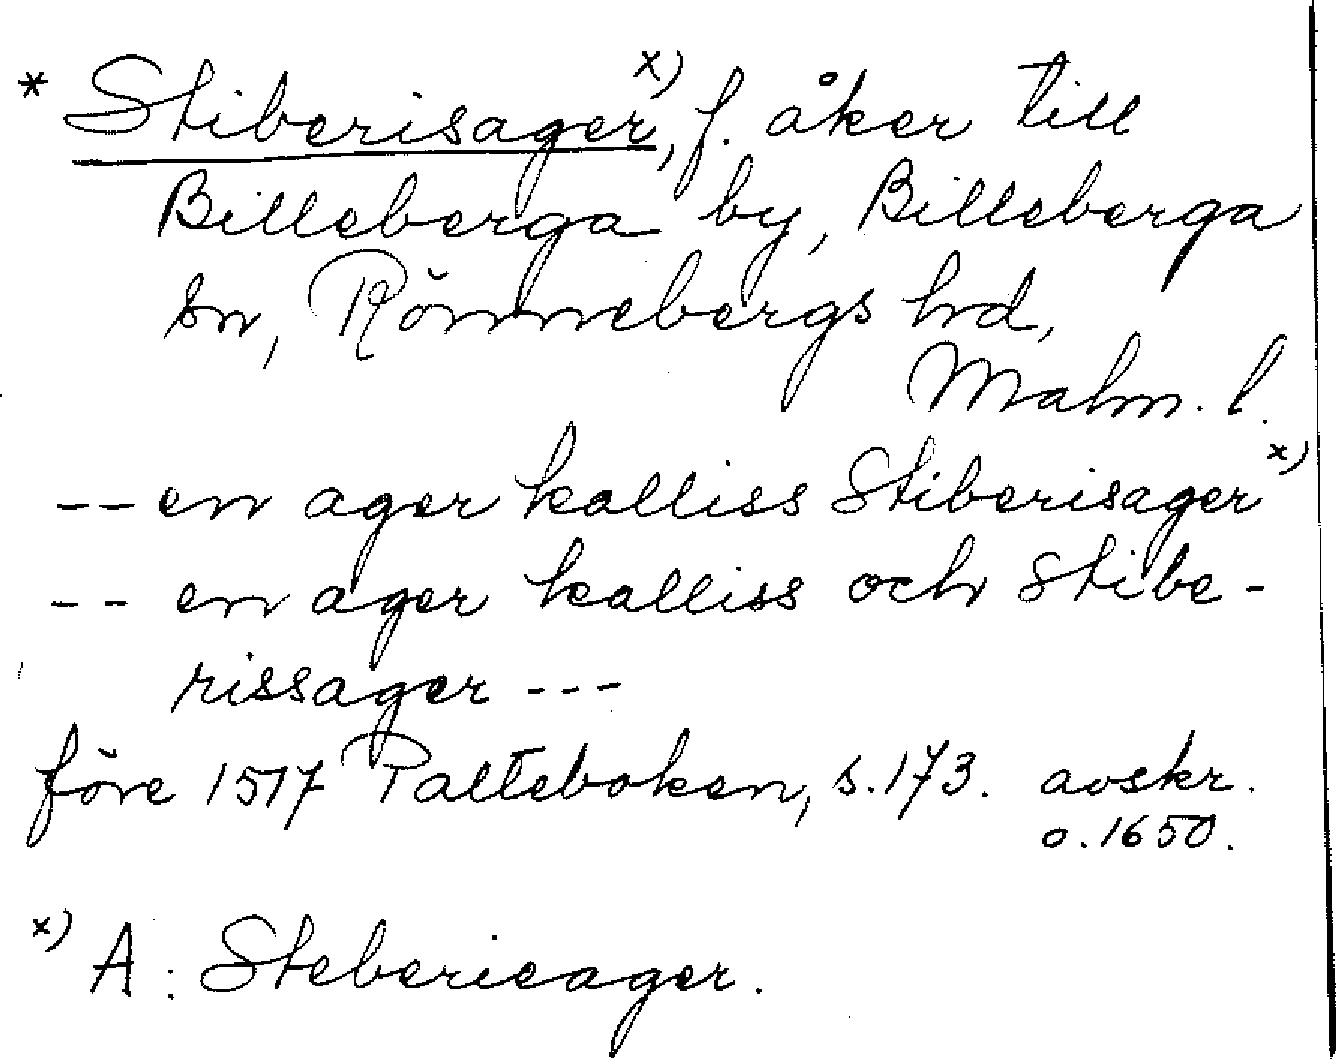 * Stiberisager x), f. åker till
Billeberga by, Billeberga
sn, Rönnebergs hd,
Malm. l.
-- en ager kalliss Stiberisager x)
-- en ager kalliss och Stibe-
rissager ---
före 1517 Palteboken, s. 173. avskr.
o. 1650.
x) A: Steberieager.